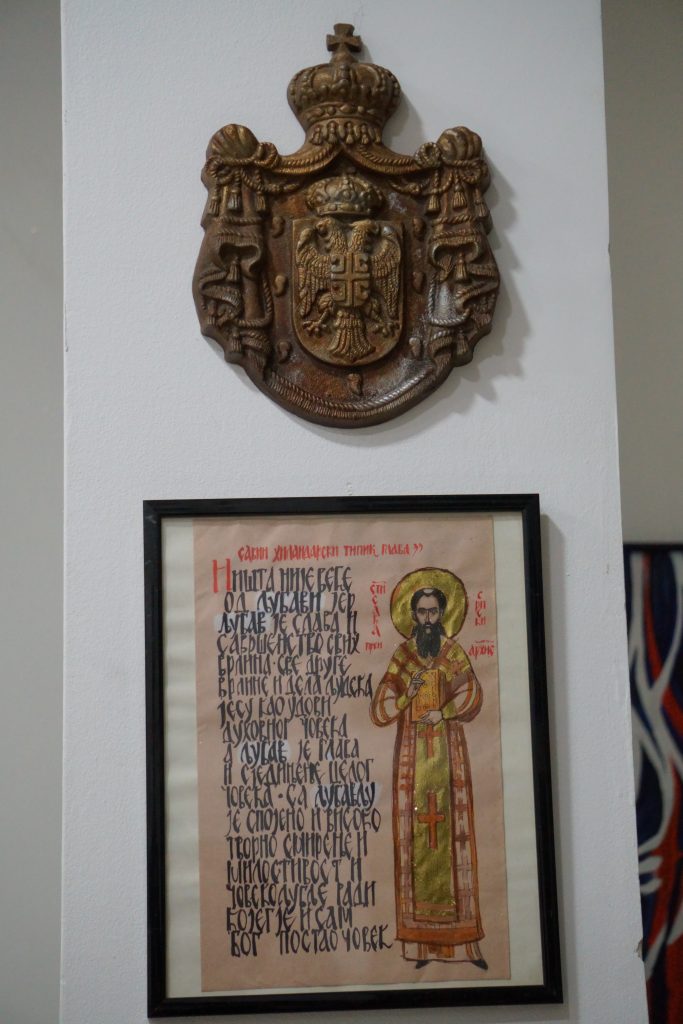 САВИН ХИЛАНДАРСКИ ТИПИК, ГЛАВА 33
НИШТА НИЈЕ ВЕЋЕ
ОД ЉУБАВИ ЈЕР
ЉУБАВ ЈЕ СЛАВА И
САВРШЕНСТВО СВИХ
ВРЛИНА · СВЕ ДРУГЕ
ВРЛИНЕ И ДЕЛА ЉУДСКА
ЈЕСУ КАО УДОВИ
ДУХОВНОГ ЧОВЕКА
А ЉУБАВ ЈЕ ГЛАВА
И СЈЕДИЊЕЊЕ ЦЕЛОГ
ЧОВЕКА · СА ЉУБАВЉУ
ЈЕ СПОЈЕНО И ВИСОКО
ТВОРНО СМИРЕЊЕ И
МИЛОСТИВОСТ И
ЧОВЕКОЉУБЉЕ РАДИ
КОЈЕГ ЈЕ И САМ
БОГ ПОСТАО ЧОВЕК
СТИ
САВА
ПРВИ
СРПСКИ